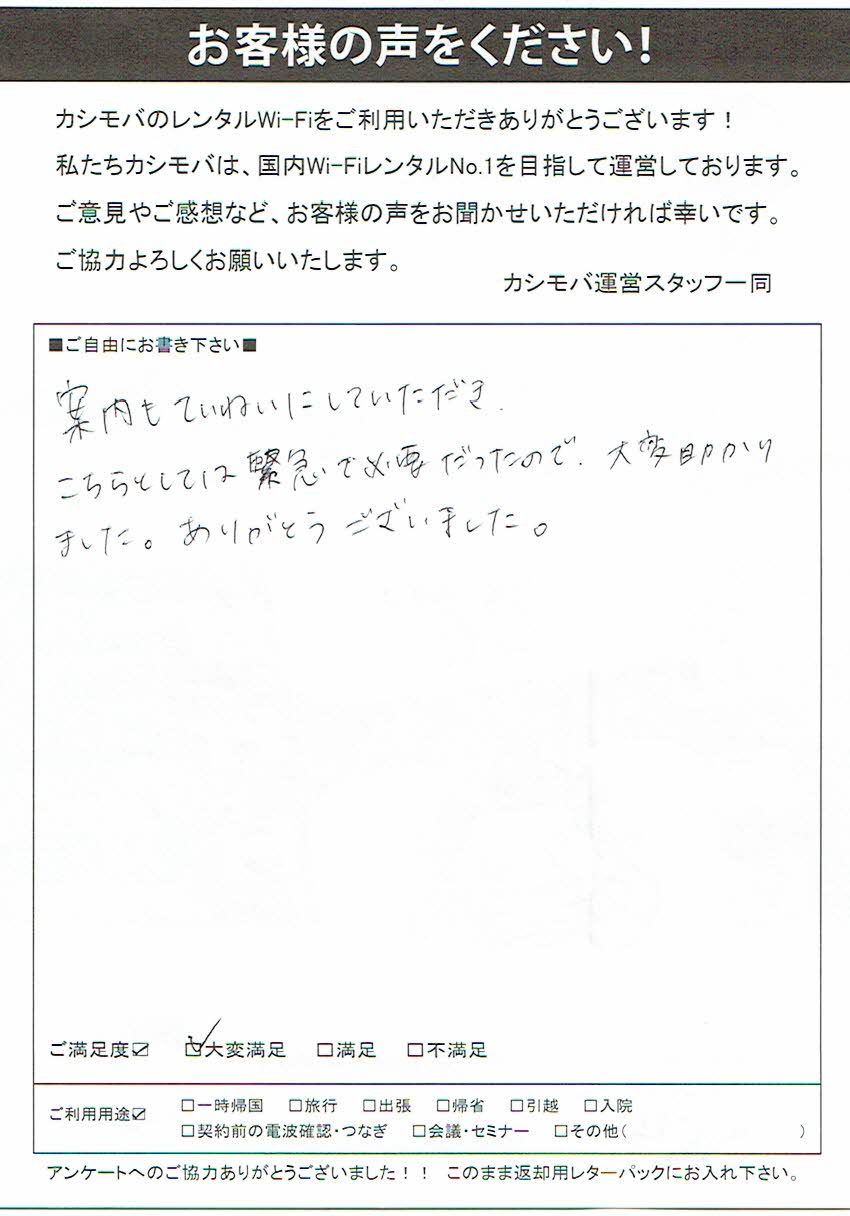 お客様の声をください!
カシモバのレンタルWi-Fiをご利用いただきありがとうございます！
私たちカシモバは、国内Wi-FiレンタルNo.1を目指して運営しております。
ご意見やご感想など、お客様の声をお聞かせいただければ幸いです。
ご協力よろしくお願いいたします。
カシモバ運営スタッフ一同
■ご自由にお書き下さい■
案内もていねいにしていただき、
こちらとしては緊急で必要だったので、大変助かり
ました。ありがとうございました。
ご満足度☑ ☑大変満足 □満足 □不満足
ご利用用途☑ □一時帰国 □旅行 □出張 □帰省 □引越 □入院
□契約前の電波確認・つなぎ □会議・セミナー □その他( )
アンケートへのご協力ありがとうございました！！ このまま返却用レターパックにお入れ下さい。